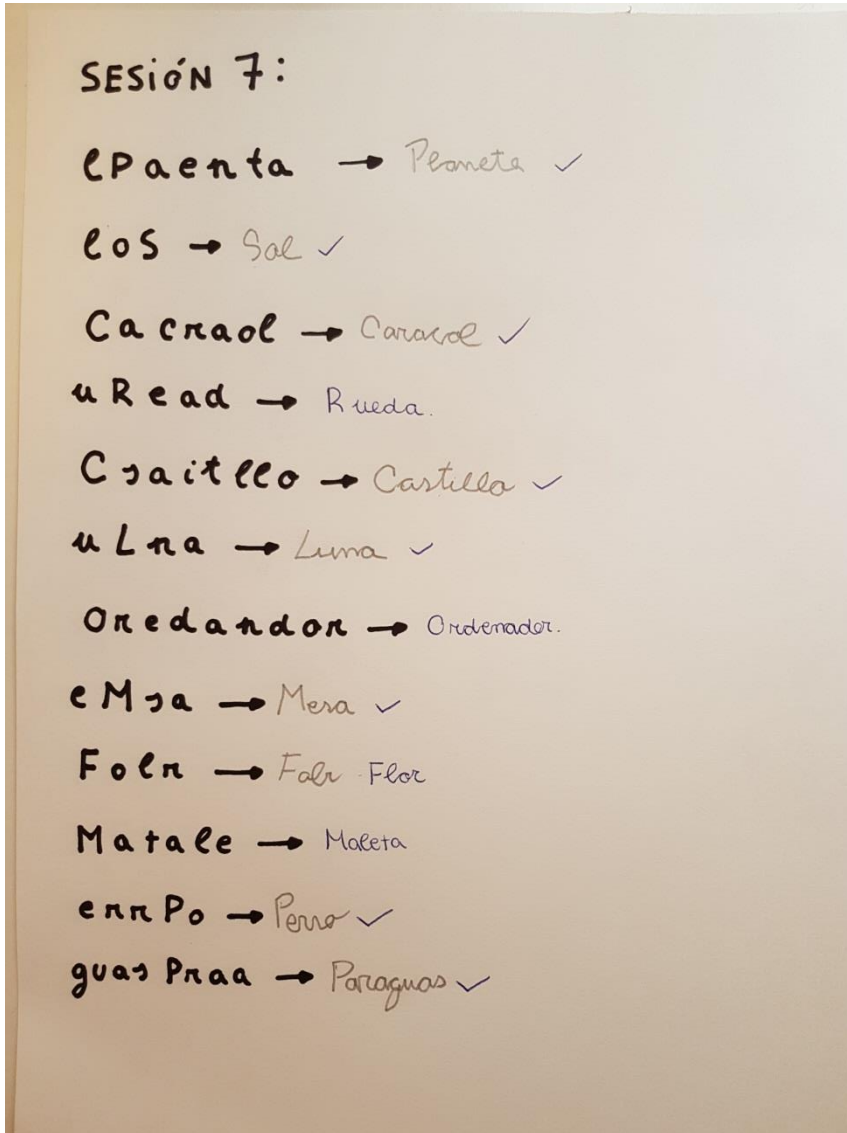 SESIÓN 7:
lPaenta → Planeta ✓
loS → Sol ✓
Cacraol → Caracol ✓
uRead → Rueda.
Csaitllo → Castillo ✓
uLna → Luna ✓
Oredandor → Ordenador.
eMsa → Mesa ✓
Folr → Folr Flor
Matale → Maleta
errPo → Perro ✓
guasPraa → Paraguas ✓